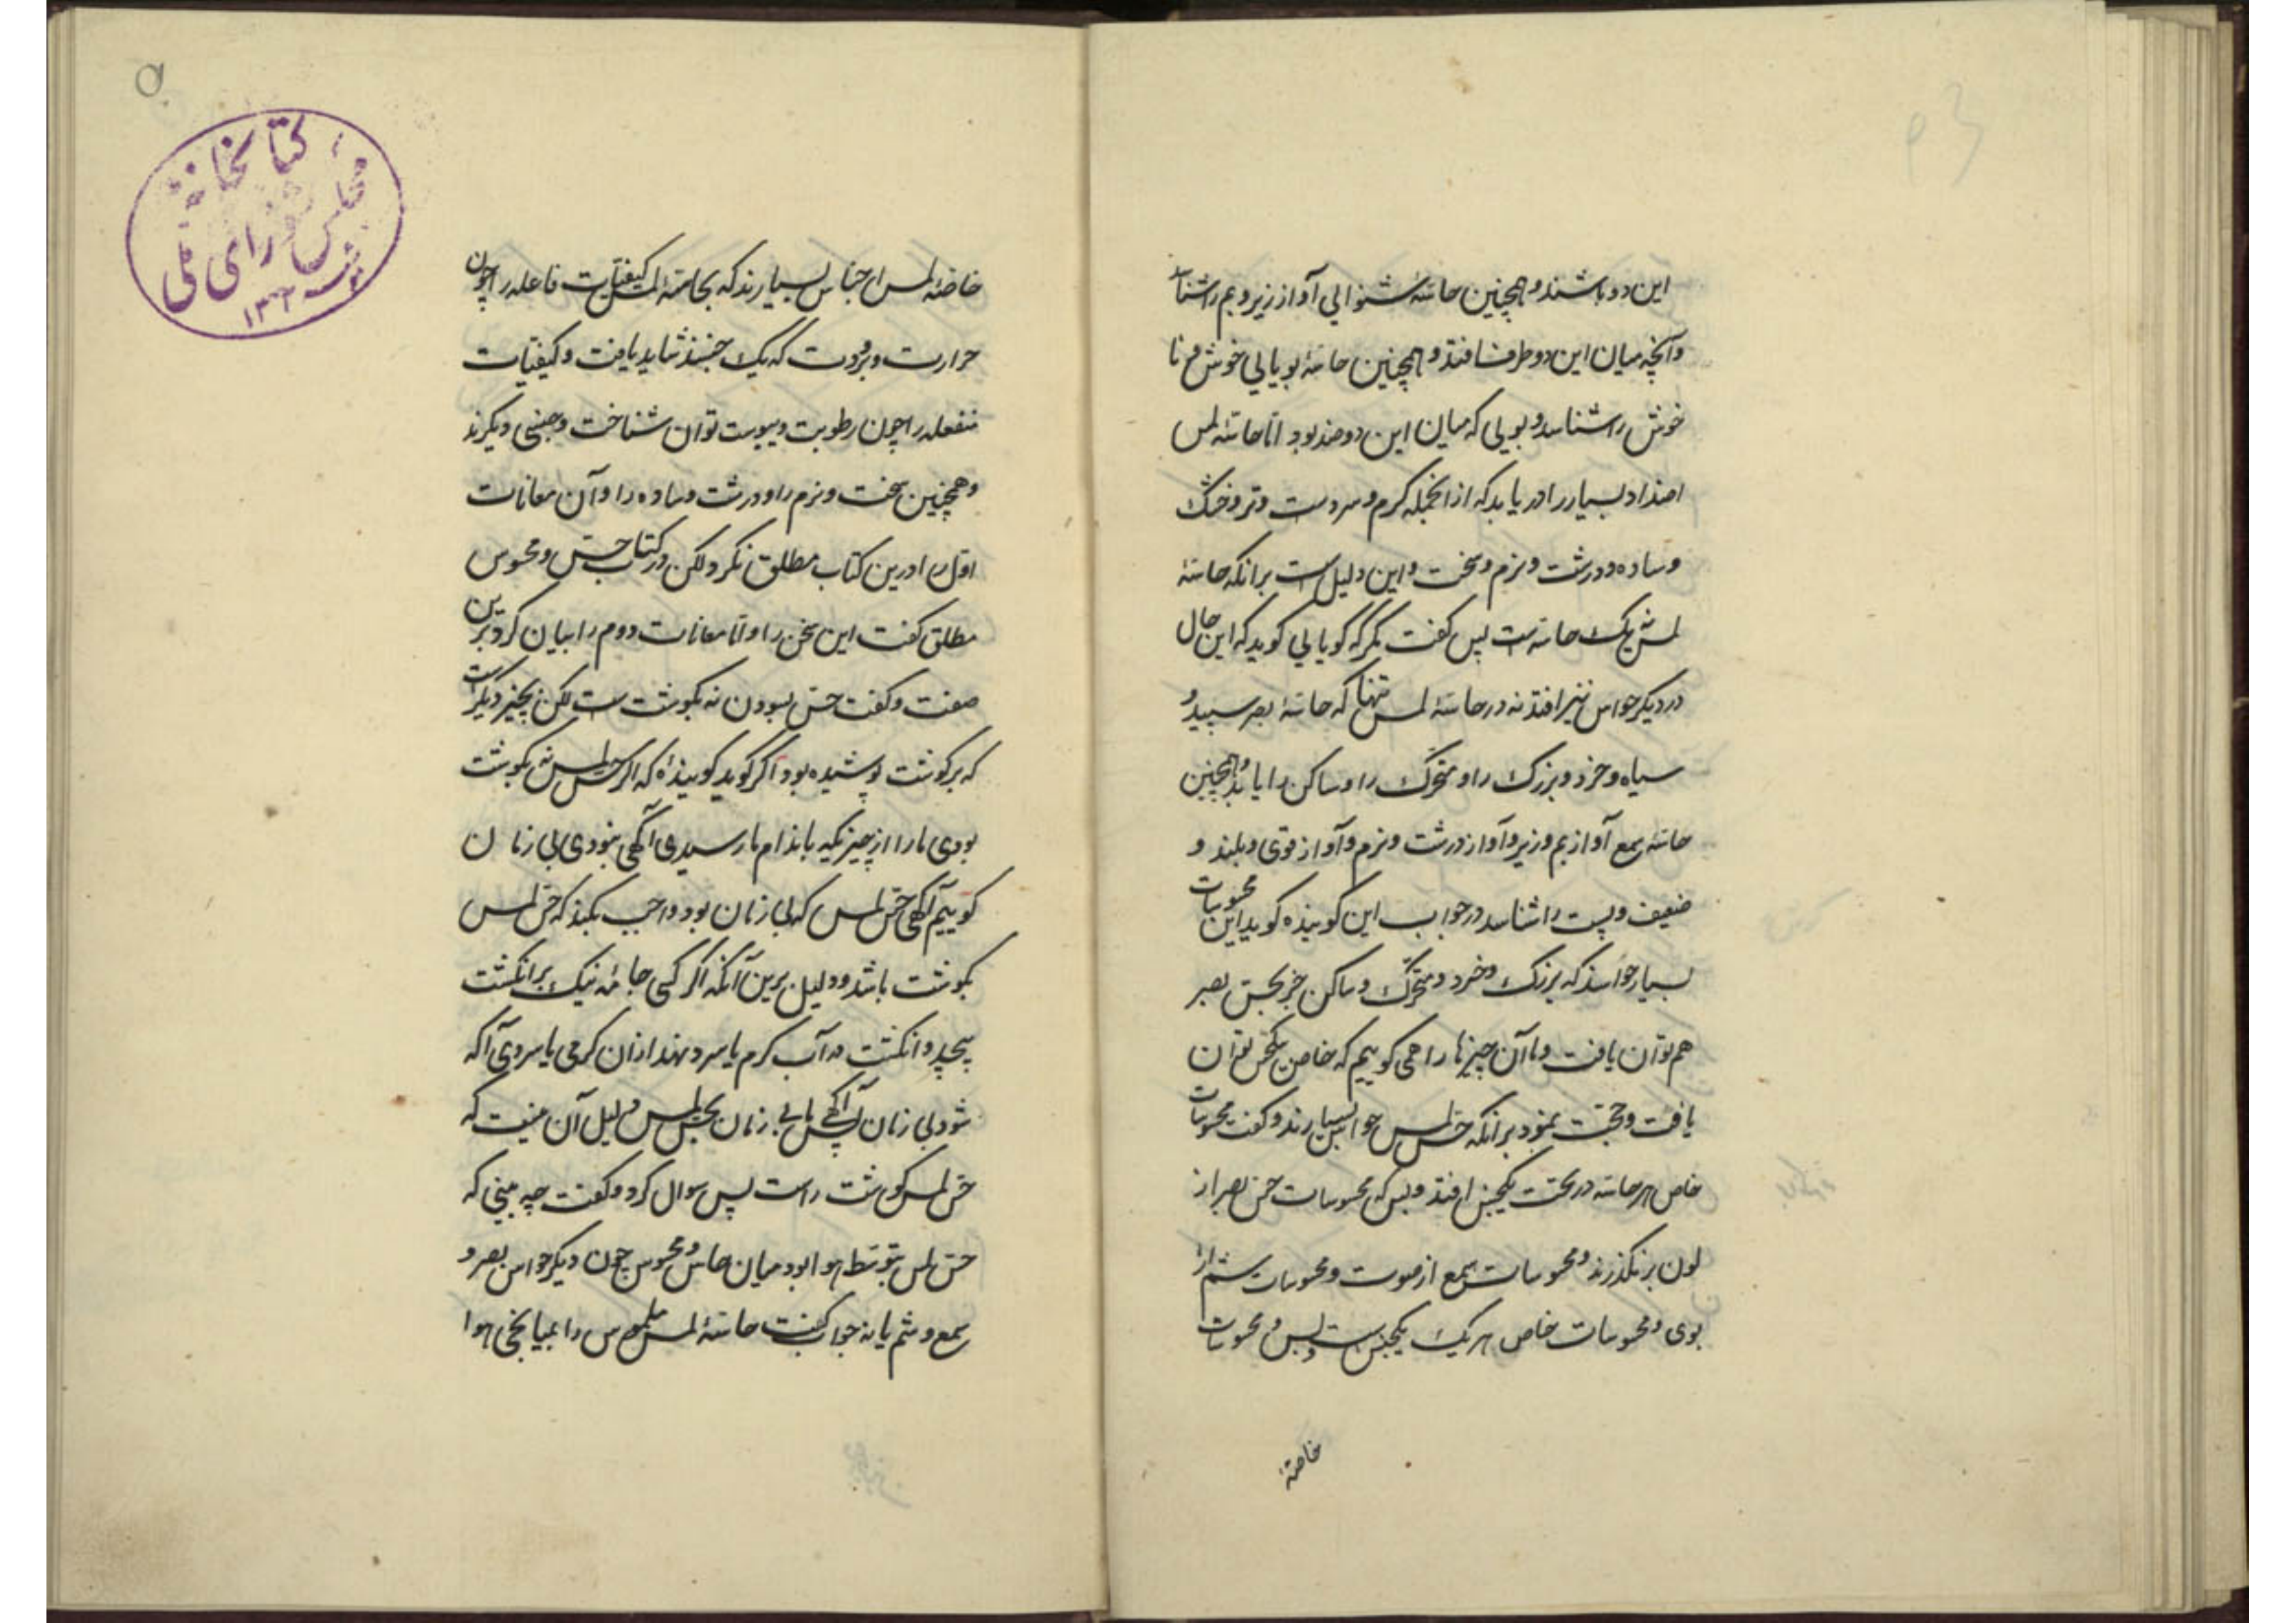 این دو باشند و همچنین حاسّهٔ شنوائی آواز زیر و بم را شناسد
و آنچه میان این دو طرف افتد و همچنین حاسّهٔ بویائی خوش و نا
خوش را شناسد و بویی که میان این دو ضد بود امّا حاسّهٔ لمس
اضداد بسیار را دریابد که از انجمله گرم و سردست و تر و خشک
و ساده و درشت و نرم و سخت و این دلیل است برانکه حاسّهٔ
لمس نه یک حاسّه است پس گفت مگر که گویایی گوید که این حال
در دیگر حواس نیز افتد نه در حاسّهٔ لمس تنها که حاسّهٔ بصر سپید و
سیاه و خرد و بزرگ را و متحرّک را و ساکن را یابد و همچنین
حاسّهٔ سمع آواز بم و زیر و آواز درشت و نرم و آواز قوی و بلند و
ضعیف و پست را شناسد در جواب این گوینده گوید این محسوسات
بسیار حواسند که بزرگ و خرد و متحرّک و ساکن جز بحسّ بصر
هم توان یافت و ما آن چیزها را همی گوییم که خاص بیکحس توان
یافت و حجّت نمود برانکه حسّ لمس حواس بسیارند و گفت محسوسات
خاص هر حاسّه در تحت یکجنس افتد و بس که محسوسات حسّ بصر از
لون برنگذرند و محسوسات سمع از صوت و محسوسات شم از
بوی و محسوسات خاص هر یک یکجنس ست و بس و محسوسات
خاصّهٔ
کتابخانهٔ
مجلس شورای ملی
۱۳۰۲
خاصّهٔ لمس اجناس بسیارند که بحاسّهٔ لمس کیفیّات فاعله را چون
حرارت و برودت که یک جنسند شاید یافت و کیفیّات
منفعله را چون رطوبت و یبوست توان شناخت و جنسی دیگرند
و همچنین سخت و نرم را و درشت و ساده را و آن معانات
اوّل را درین کتاب مطلق نکرد لکن در کتاب حسّ و محسوس
مطلق گفت این سخن را و امّا معانات دوم را بیان کرد برین
صفت و گفت حسّ بسودن نه بگوشت ست لکن بچیز دیگر است
که بر گوشت پوشیده بود اگر گوید گوینده که اگر حسّ لمس نه بگوشت
بودی ما را از چیزیکه باندام ما رسیدی آگهی نبودی بی زمان
گوییم آگهی حسّ لمس که بی زمان بود واجب نکند که حسّ لمس
بگوشت باشد و دلیل برین آنکه اگر کسی جامهٔ تنک بر انگشت
پیچد و انگشت در آب گرم یا سرد نهد از ان گرمی یا سردی آگه
شود بی زمان پس آگهی بی زمان بحسّ لمس دلیل آن نیست که
حسّ لمس گوشت راست پس سوال کرد و گفت چه بینی که
حسّ لمس بتوسّط هوا بود میان حاس و محسوس چون دیگر حواس بصر و
سمع و شم یا نه جواب گفت حاسّهٔ لمس ملموس را بمیانجی هوا